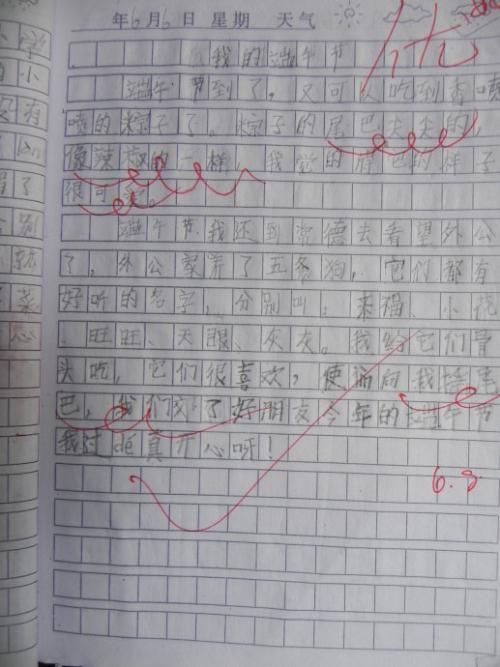 年6月6日 星期 天气
优
我的端午节
端午节到了,又可以吃到香喷
喷的粽子了。粽子的尾巴尖尖的,
像辣椒的一样,我觉的尾巴的样子
很可爱。
端午节我还到常德去看望外公
了,外公家养了五条狗,它们都有
好听的名字,分别叫:来福、小花
、旺旺、天眼、灰灰。我给它们骨
头吃,它们很喜欢,使劲向我摇尾
巴,我们交了好朋友今年的端午节
我过de真开心呀!
6.8